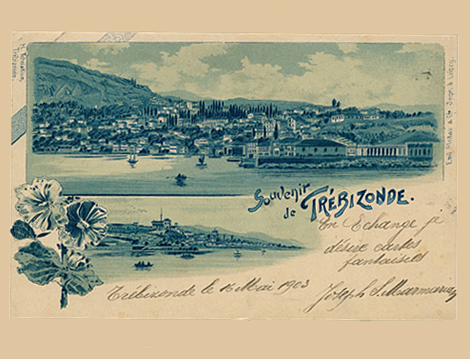 Souvenir
de TRÉBIZONDE.
En Echange je
désire cartes
fantaisies
Trébizonde le 16 Mai 1903
Joseph S.
Trébizonde.